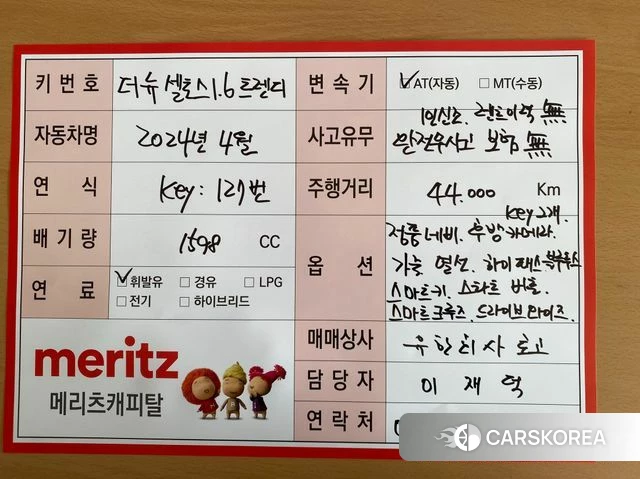 키 번 호 더뉴 셀토스 1.6 트렌디
변 속 기 ☑ AT(자동) □ MT(수동)
자동차명 2024년 4월
사고유무 1인신조. 렌트이력 無
완전무사고 보험 無
연 식 Key : 127번
주행거리 44.000 Km
배 기 량 1598 CC
옵 션 Key 2개.
정품 네비. 후방 카메라.
가죽 열선. 하이패스 블루투스
스마트키. 스타트 버튼.
스마트크루즈. 드라이브 와이즈.
연 료 ☑ 휘발유 □ 경유 □ LPG
□ 전기 □ 하이브리드
매매상사
담 당 자 이 재 덕
연 락 처
meritz
메리츠캐피탈
CARSKOREA